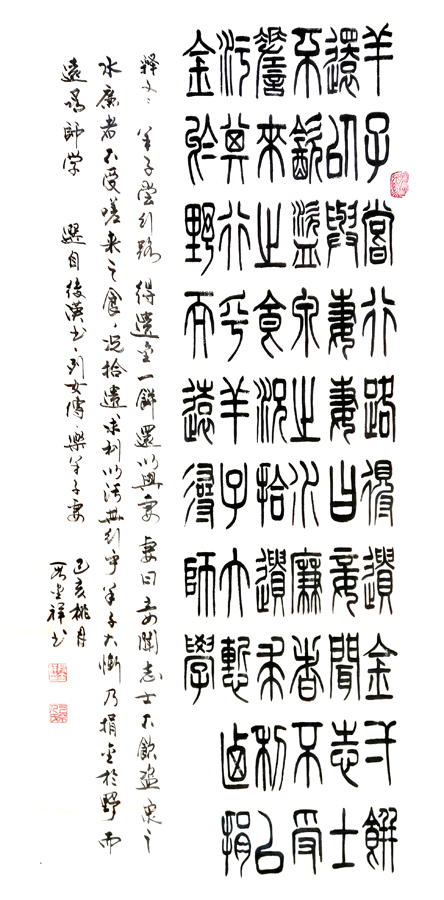 羊子嘗行路得遺金一餅
還以與妻妻曰妾聞志士
不飲盜泉之水廉者不受
嗟來之食況拾遺求利以
污其行乎羊子大慙乃捐
金於野而遠尋師學
释文：羊子尝行路得遺金一餅還以與妻妻曰妾闻志士不飲盗泉之
水廉者不受嗟来之食，况拾遺求利以污其行乎羊子大惭乃捐金於野而
遠尋師学 選自後漢书·列女傳·樂羊子妻
己亥桃月
祥书